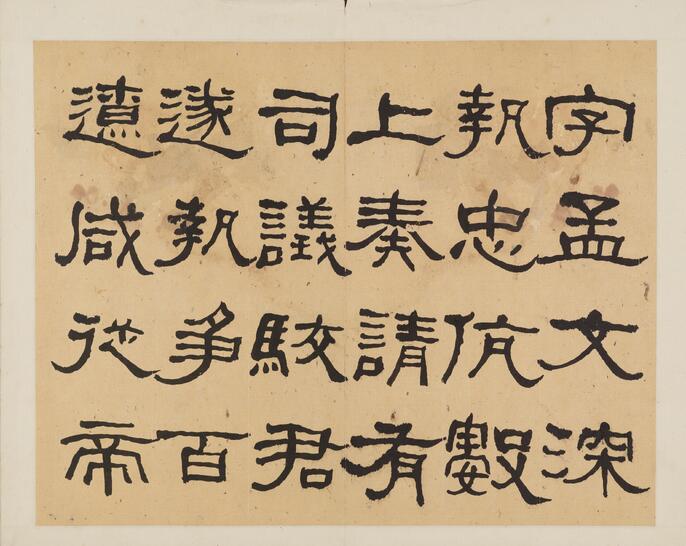 字孟文深
執忠伉數
上奏請有
司議駮君
遂執爭百
遼咸從帝